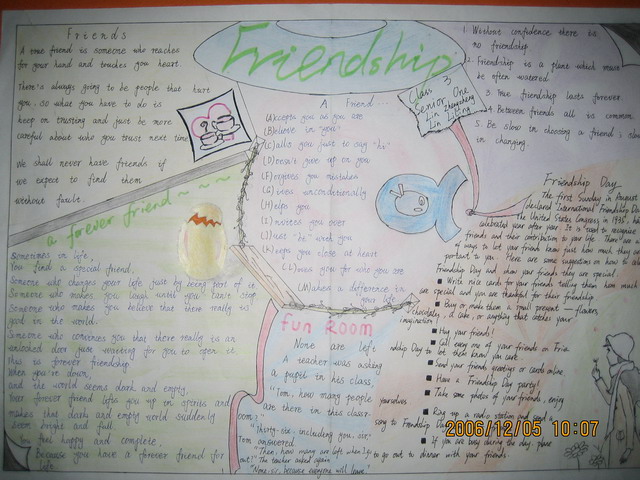 Friends
A true friend is someone who reaches
for your hand and touches you heart.
There's always going to be people that hurt
you, so what you have to do is
keep on trusting and just be more
careful about who you trust next time
We shall never have friends if
we expect to find them
without fault.
a forever friend~~~
Sometimes in life,
You find a special friend,
Someone who changes your life just by being part of it
Someone who makes you laugh until you can't stop
Someone who makes you believe that there really is
good in the world.
Someone who convinces you that there really is an
unlocked door just waiting for you to open it
this is forever friendship
When you're down,
and the world seems dark and empty,
Your forever friend lifts you up on spirits and
makes that dark and empty world suddenly
seem bright and full.
You feel happy and complete,
Because you have a forever friend for
life
Friendship
Class 3
Senior One
Lin
Lin Liting
A Friend...
(A)ccepts you as you are
(B)elieve in "you"
(C)alls you just to say "hi"
(D)oesn't give up on you
(F)orgives you mistakes
(G)ives unconditionally
(H)elps you
(I)nvites you over
(J)ust "be" with you
(K)eeps you close at heart
(L)oves you for who you are
(M)akes a difference in
your life
fun Room
None are left
A teacher was asking
a pupil in his class,
"Tom, how many people
are there in this class-
room?"
"Thirty-six, including you, sir,"
Tom answered.
"Then, how many are left when I go
out?" The teacher asked again
"None sir, because everyone will leave."
1. Without confidence there is
no friendship
2. Friendship is a plant which must
be often watered
3. True friendship lasts forever
4. Between friends all is common
5. Be slow in choosing a friend, slower
in changing.
Friendship Day
The first Sunday in August
declared International Friendship Day
The United States Congress in 1935, ha
celebrated year after year. It is used to recognize
friends and their contribution to your life. There are
of ways to let your friends know just how much they
portant to you. Here are some suggestion on how to
Friendship Day and show your friends they are special
■ Write nice cards for your friends telling them how much
are special and you are thankful for their friendship
■ Buy or make them a small present — flowers,
chocolate, a cake, or anything that catches your
imagination!
■ Hug your friend!
■ Call every one of your friends on Frie
ndship Day to let them know you care
■ Send your friends greetings or cards online
■ Have a Friendship Day party!
■ Take some photos of your friends, enjoy
yourselves
■ Ring up a radio station and send a
song to Friendship Day
■ If you are busy during the day, place
to go out to dinner with your friends.
2006/12/05 10:07